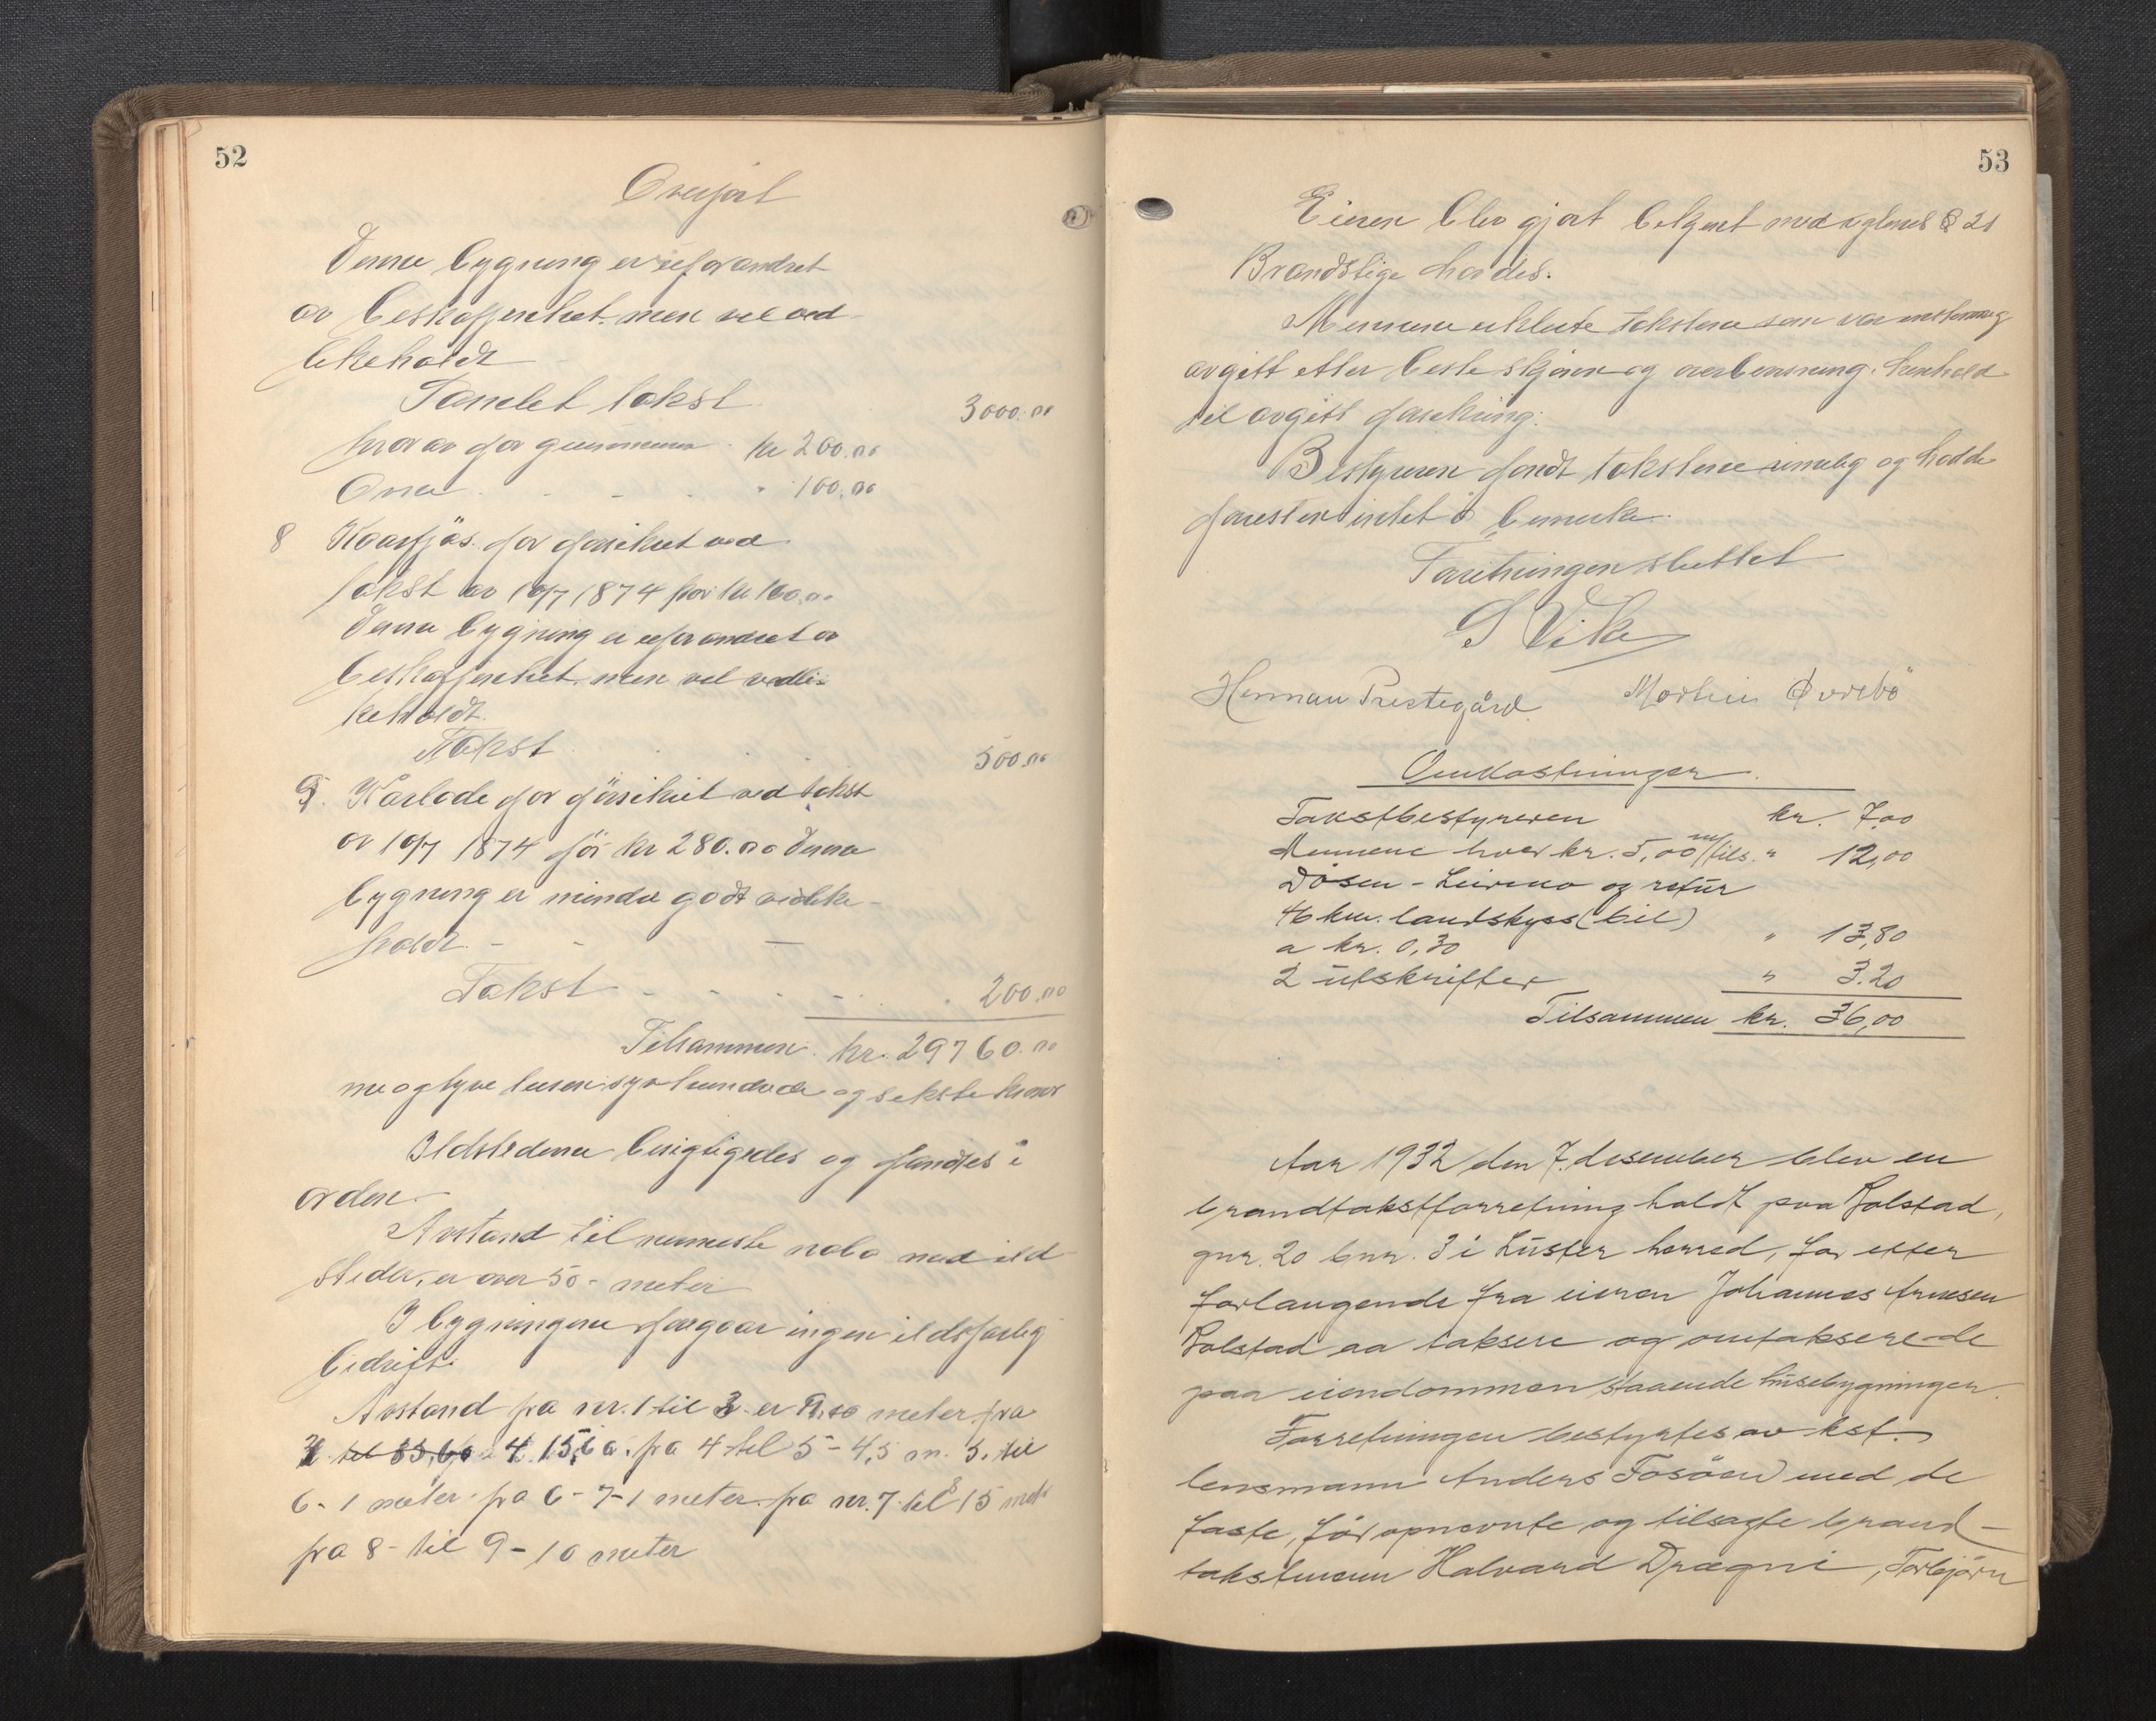 52
Overført
Denne bygning er uforandret
av beskaffenhet. men vel ved-
likeholdt
Samlet takst 3000.00
hvorav for grunmuren kr 200.00
Ovn " 100.00
8 Floarfjøs. før forsikret ved
takst av 10/7 1874 for kr 160.00
Denne bygning er uforandret av
beskaffenhet. men vel vedli-
keholdt.
Takst 500.00
9. Karlade før forsikret ved takst
av 10/7 1874 for kr 280.00 Denne
bygning er mindre godt vedlike-
holdt. - - —
Takst - - - - 200.00
Tilsammen. kr. 29760.00
ni og tyve tusen syvhundrede og seksti kroner
Ildstederne besigtigedes og fandtes i
orden.
Avstand til nærmeste nabo med ild
steder, er over 50 - meter
I bygningerne foregaar ingen ildsfarlig
bedrift.
Avstand fra nr. 1 til 3 er 9,10 meter fra
3 til 33,60 4 15,60. fra 4 til 5 - 4,5 m. 5. til
6 - 1 meter. fra 6 - 7 - 1 meter. fra nr. 7 til 8 15 met
fra 8 - til 9 - 10 meter
53
Eieren blev gjort bekjent med reglenes § 21
Brandstige havdes.
Mennene erklærte takstene som var enstemmig
avgitt efter beste skjønn og overbevisning. henhold
til avgitt forsikring.
Bestyreren fandt takstene rimelig og hadde
foresten intet å bemerke.
Forretningen sluttet
S Vike
Herman Prestegård. Martin Øvrebö
Omkostninger.
Takstbestyreren kr. 7,00
Mennene hver kr. 5,00 tils. " 12,00
Døsen - Leirmo og retur
46 km. landskyss (bil)
a kr. 0,30 " 13,80
2 utskrifter " 3.20
Tilsammen kr. 36,00
Aar 1932 den 7. desember blev en
brandtakstforretning holdt paa Bolstad,
gnr. 20 bnr. 3 i Luster herred, for efter
forlangende fra eieren Johannes Arnesen
Bolstad aa taksere og omtaksere de
paa eiendommen staaende husebygninger.
Forretningen bestyrtes av kst.
lensmann Anders Fosøen med de
faste, før opnevnte og tilsagte brand-
takstmenn Halvard Drægni, Torbjørn